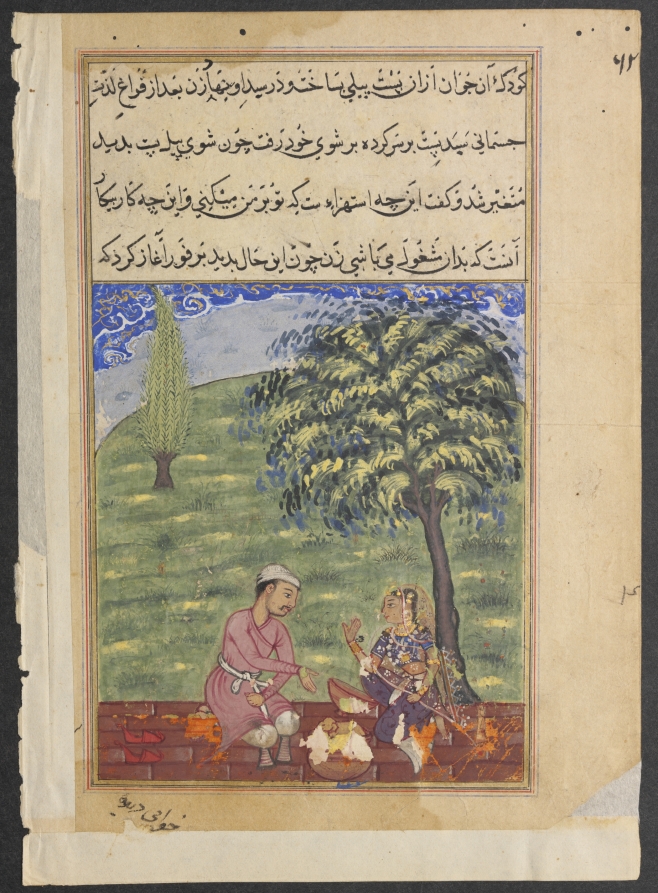 آن جوان ازان پست پیلی ساخت و در سبد او بنهاد زن بعد از فراغ لذت
جسمانی سبد پست بر سر کرده بر شوی خود رفت چون شوی پیل پست بدید
متغیر شد و گفت این چه استهزاء ست که تو بر من میکنی و این چه کار بیکار
است که بدان مشغول می باشی زن چون این حال بدید بر فور آغاز کرد که
۶۲
خوابی دیده